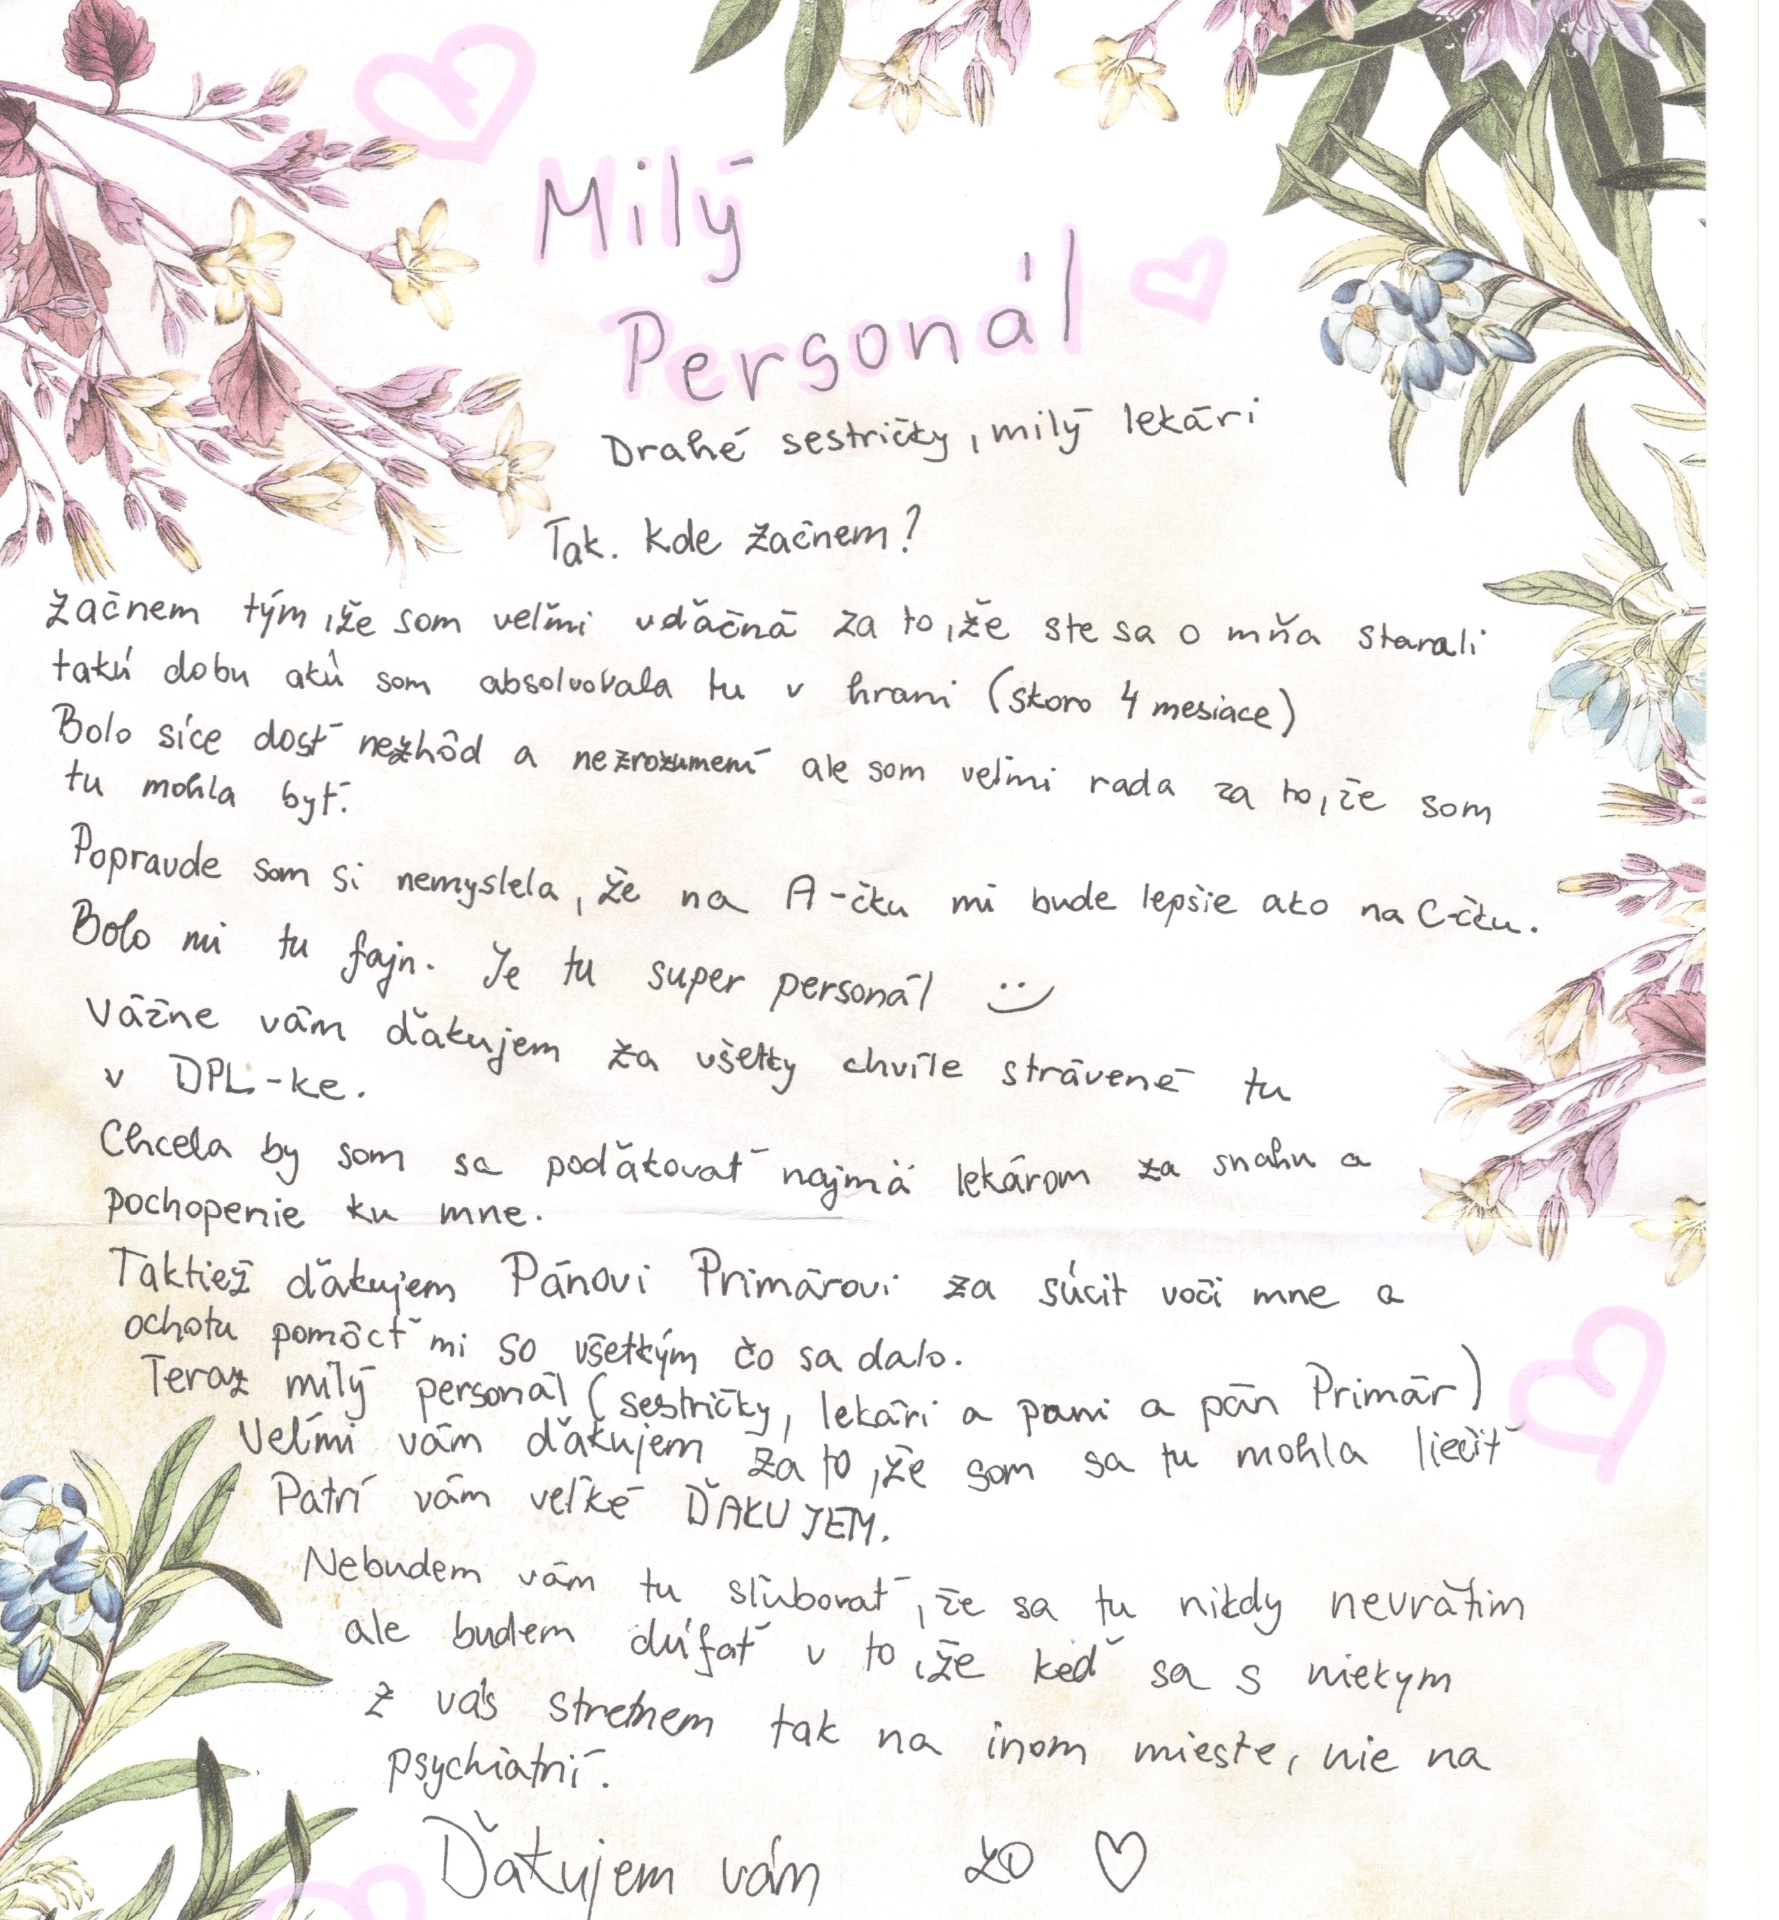 Milý
Personál
Drahé sestričky, milý lekári
Tak. kde začnem?
Začnem tým, že som veľmi vďačná za to, že ste sa o mňa starali
takú dobu akú som absolvovala tu v hrani (skoro 4 mesiace)
Bolo síce dosť nezhôd a nezrozumení ale som veľmi rada za to, že som
tu mohla byť.
Popravde som si nemyslela, že na A-čku mi bude lepšie ako na C-čku.
Bolo mi tu fajn. Je tu super personál :)
Vážne vám ďakujem za všetky chvíle strávené tu
v DPL-ke.
Chcela by som sa poďakovať najmä lekárom za snahu a
pochopenie ku mne.
Taktiež ďakujem Pánovi Primárovi za súcit voči mne a
ochotu pomôcť mi so všetkým čo sa dalo.
Teraz milý personál (sestričky, lekári a pani a pán Primár)
Veľmi vám ďakujem za to, že som sa tu mohla liečiť
Patrí vám veľké ĎAKUJEM.
Nebudem vám tu sľubovať, že sa tu nikdy nevrátim
ale budem dúfať v to, že keď sa s niekym
z vás stretnem tak na inom mieste, nie na
psychiatrií.
Ďakujem vám ♡